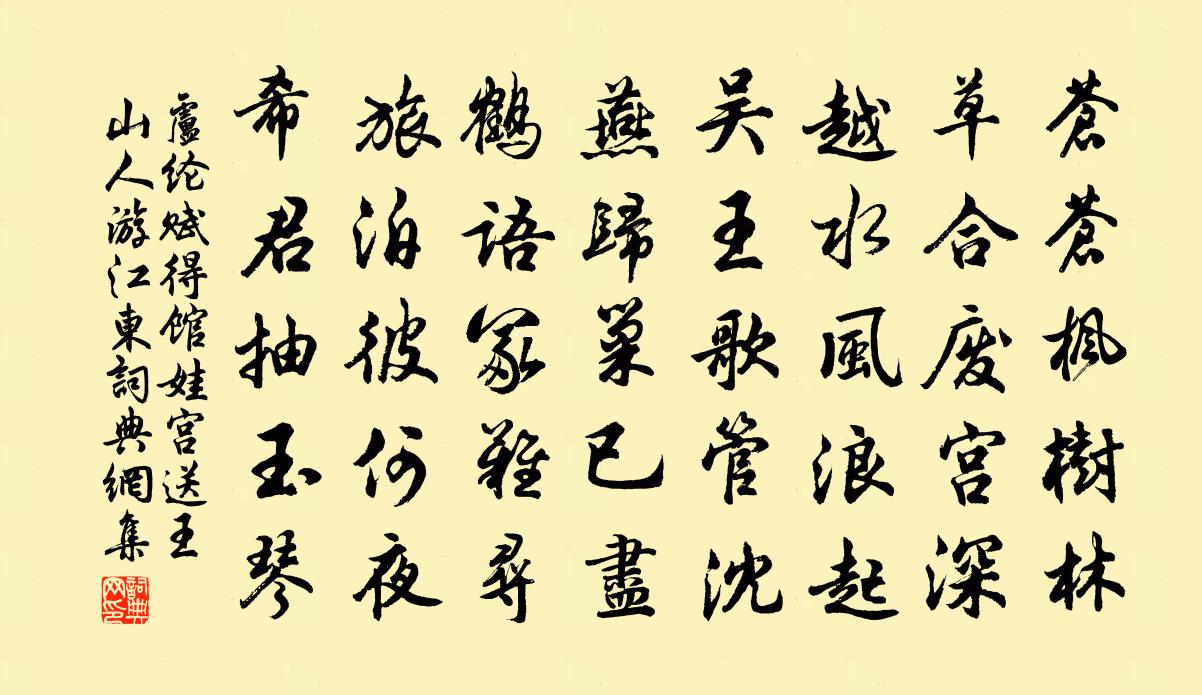 蒼蒼楓樹林
草合废宫深
越水風浪起
吴王歌管沈
燕歸巢已盡
鶴語冢難尋
旅泊彼何夜
希君抽玉琴
盧纶赋得馆娃宫送王
山人游江東詞典網集
詞典網印